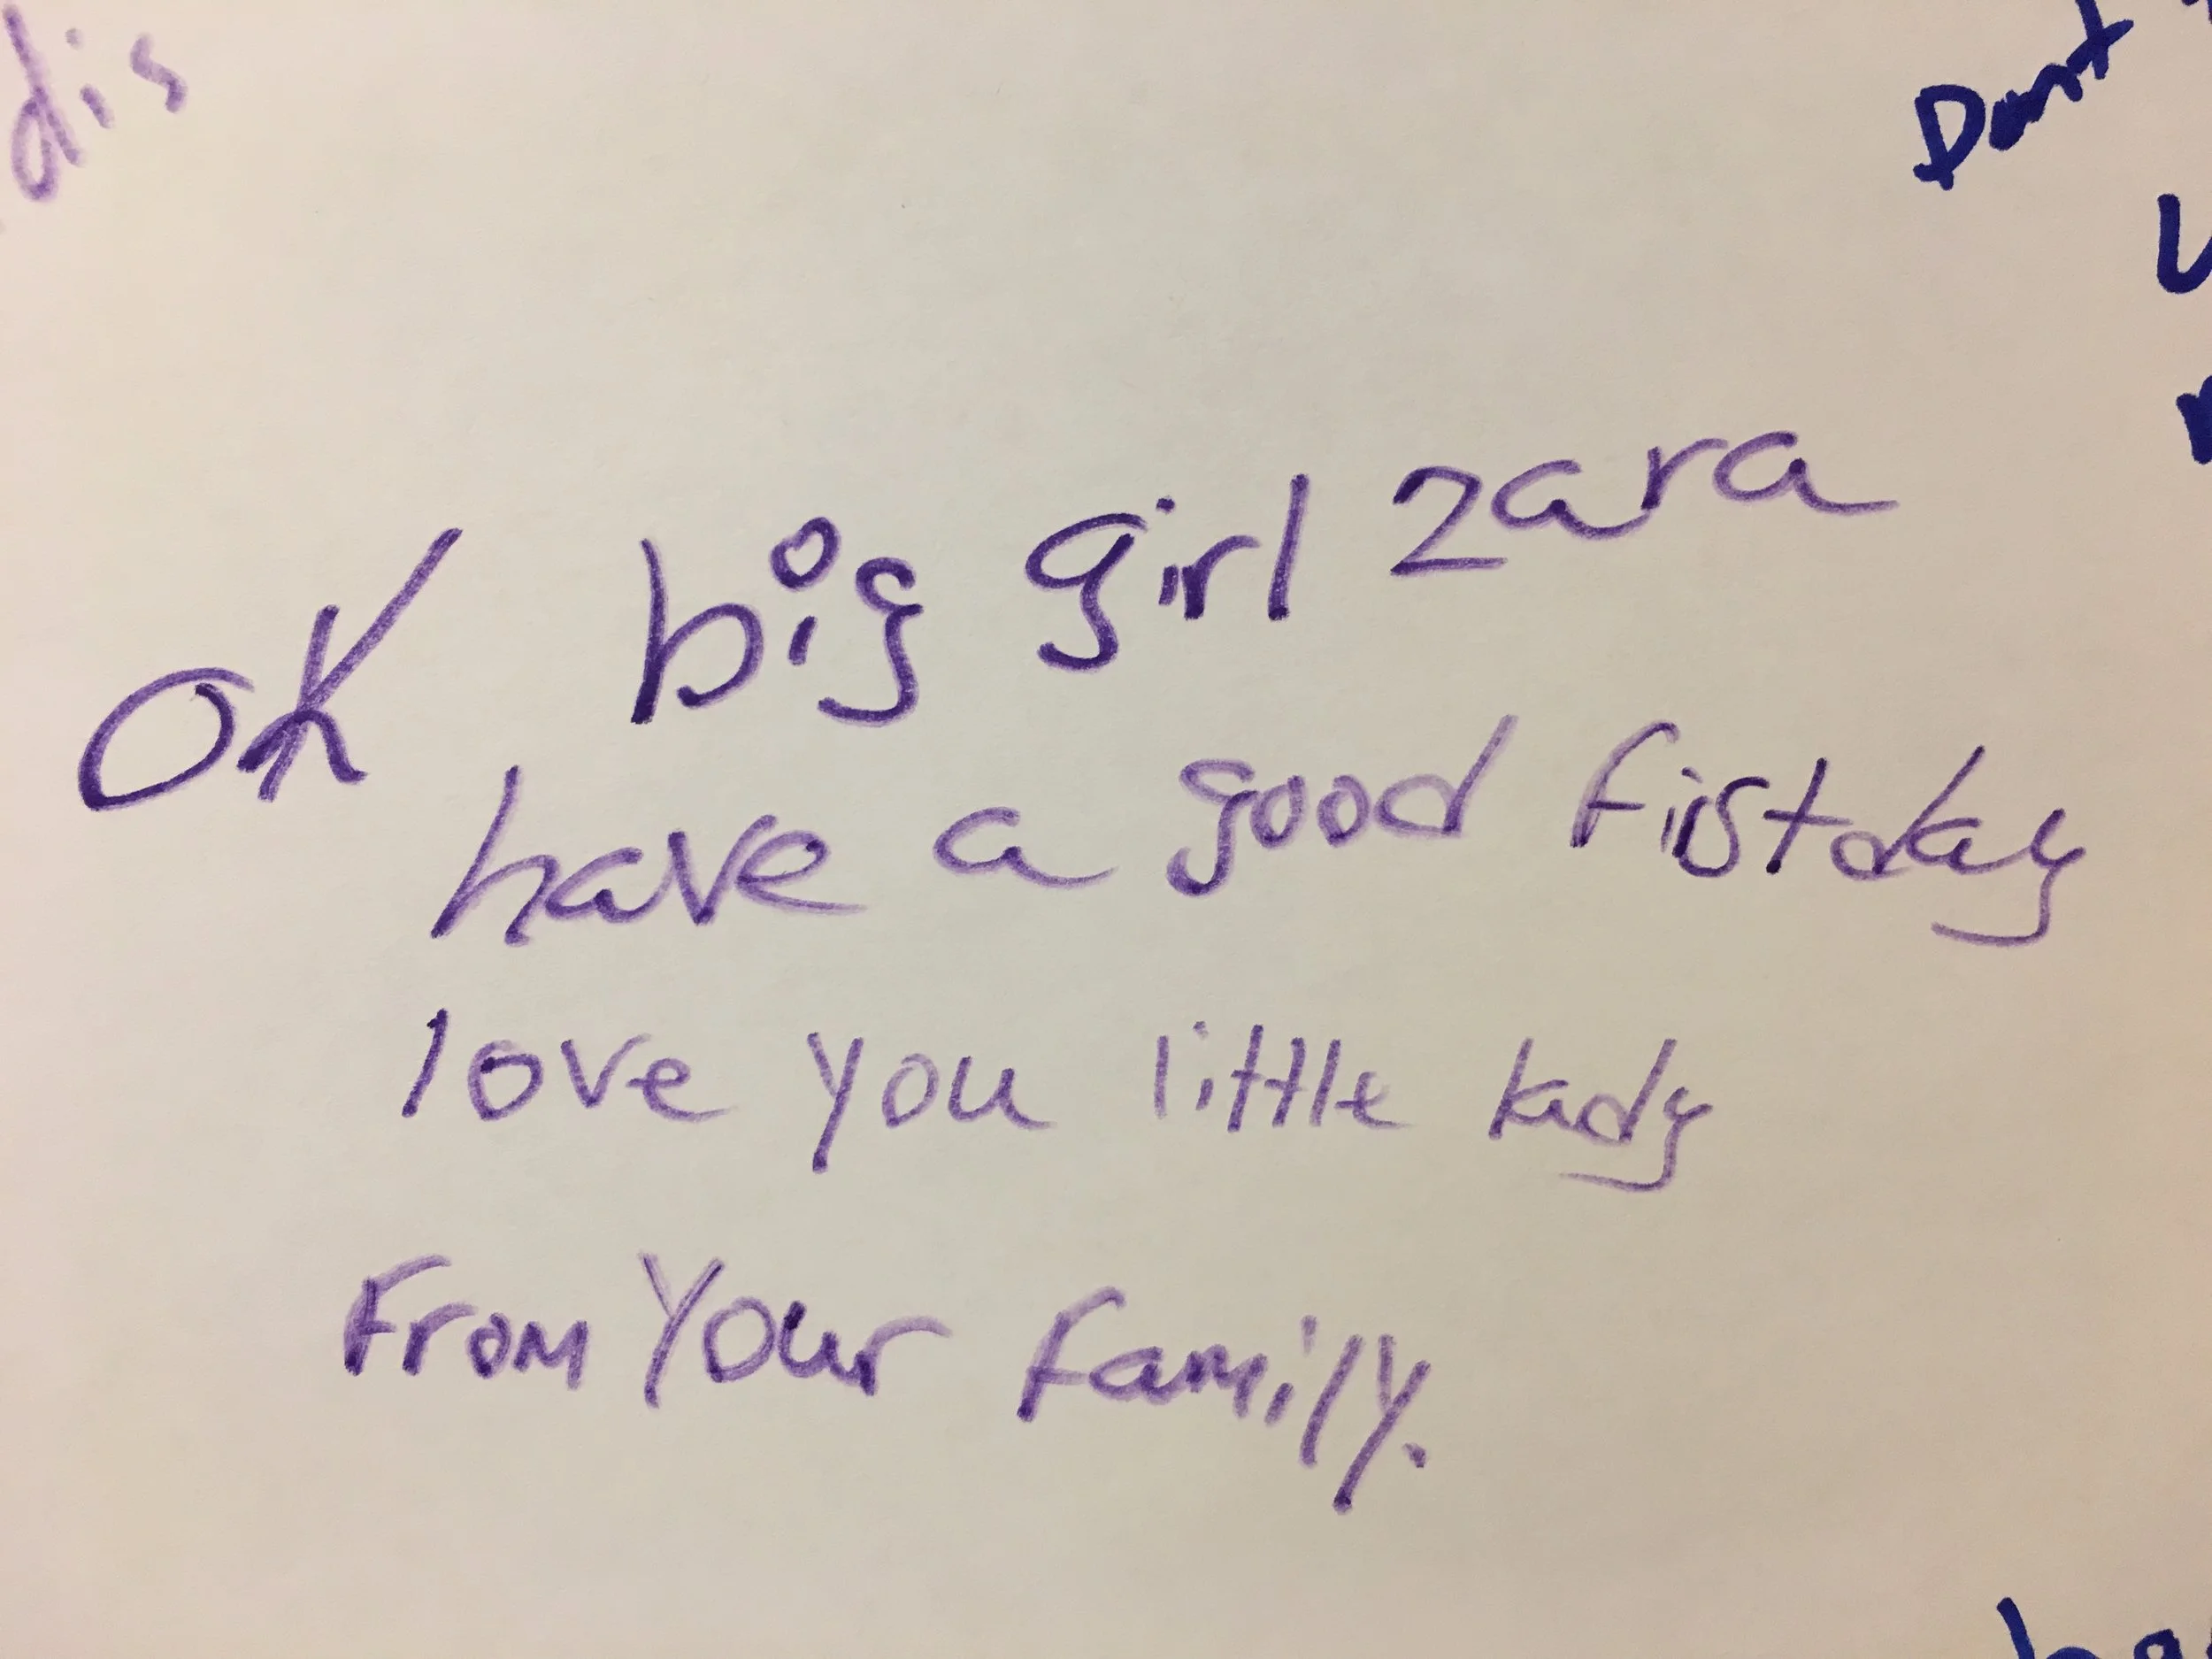 dis
Dont
OK big girl zara
have a good first day
love you little lady
From Your Family.